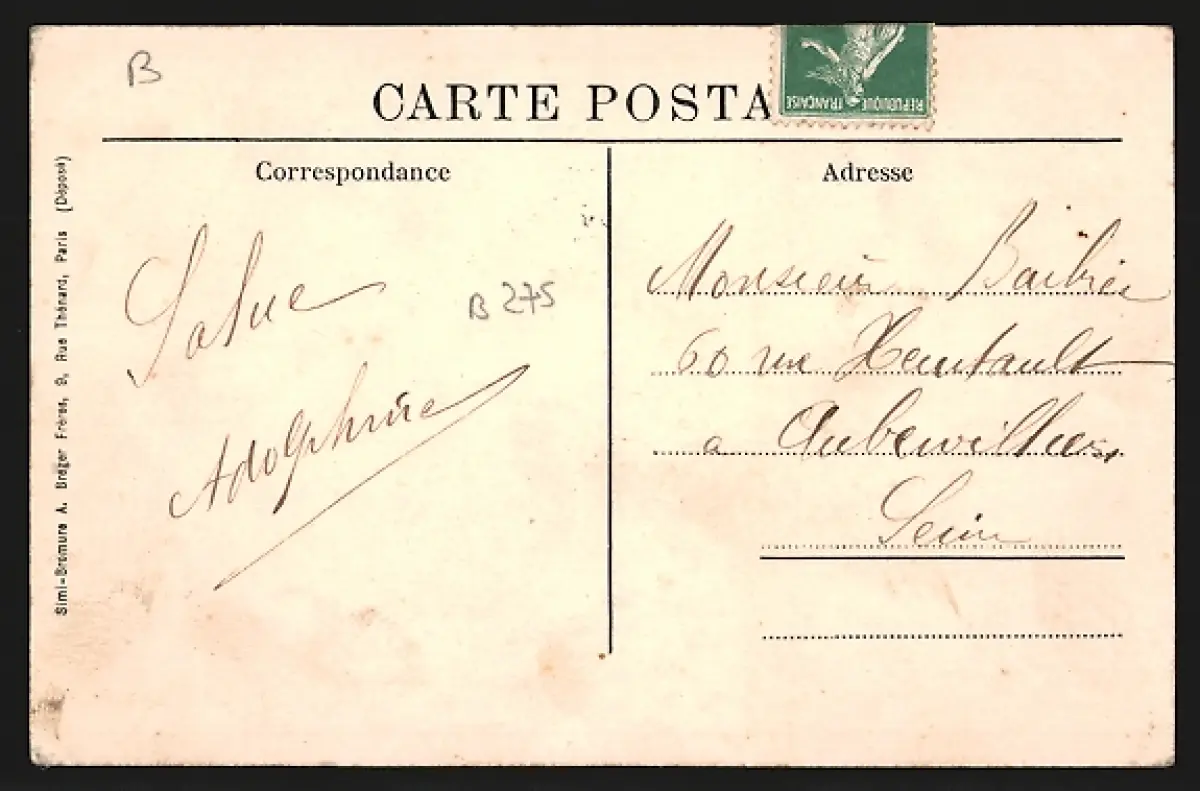 B
CARTE POSTA
REPUBLIQUE FRANÇAISE
Correspondance
Adresse
Salue
B 275
Adolphine
Monsieur Barbier
60 rue Heurtault
a Aubervilliers
Seine
Simi-Bromure A. Breger Frères, 9, Rue Thénard, Paris (Déposé)